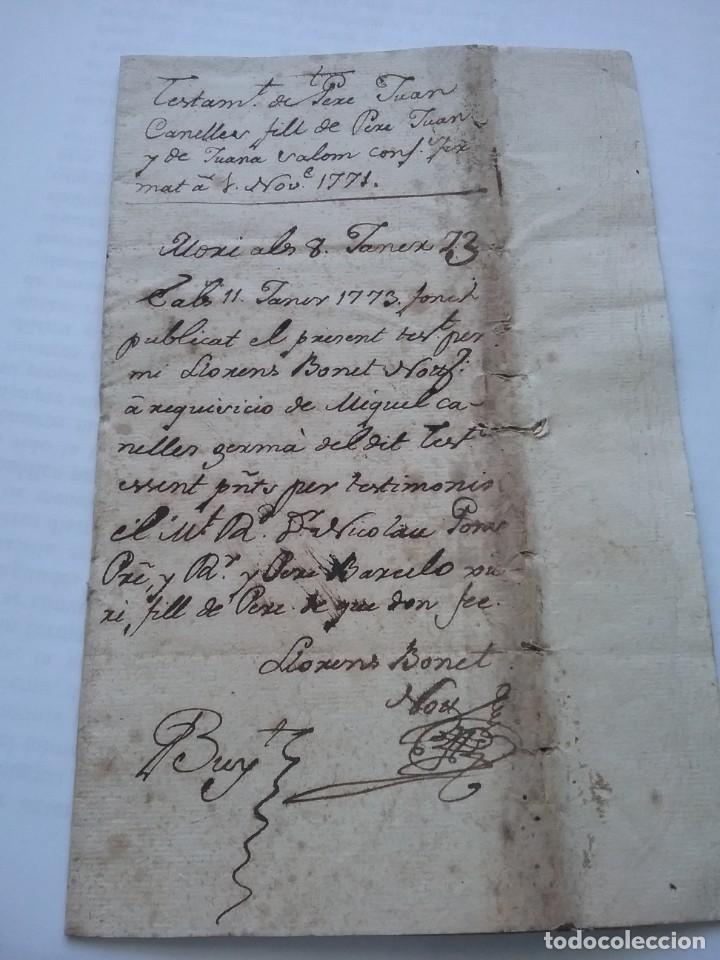 Testamt. de Pere Juan
Canelles, fill de Pere Juan
y de Juana Salom conf. fir
mat â 1. Nove. 1771.
Mori als 8. Janer 73
E als 11. Janer 1773. fonch
publicat el present test. per
mi Llorens Bonet Nott.
â requisicio de Miquel Ca
nelles germà del dit Test
essent pñts per testimonis
el Mt. Rt. Dr. Nicolau
Pre, y Rr. y Pere Barcelo
ri, fill de Pere. de que don fee.
Llorens Bonet
Nott
todocoleccion